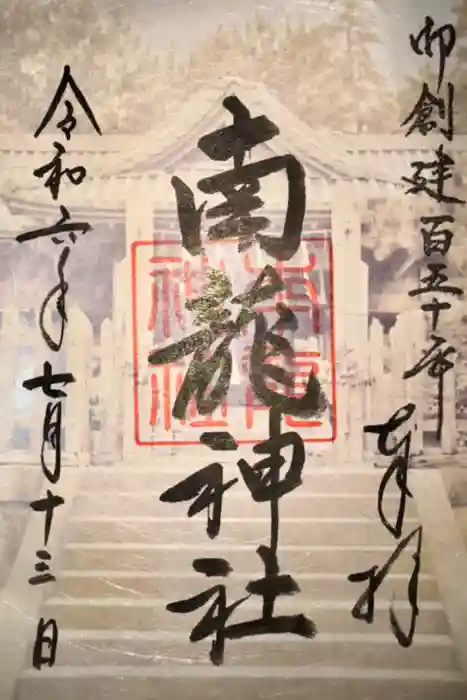 御創建百五十年
奉拝
南龍神社
令和六年七月十三日